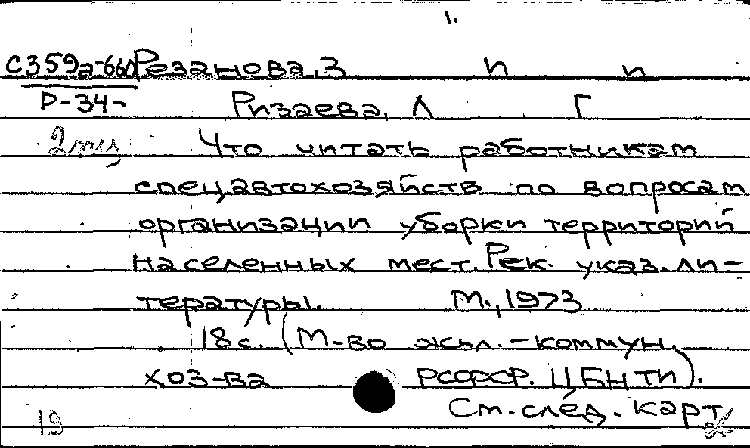 1.
С359а-660 Резанова, З П П
Р-34- Ризаева, Л Г
Что читать работникам
спецавтохозяйств по вопросам
организации уборки территорий
населенных мест. Рек. указ. ли-
тературы. М., 1973
18 с. (М-во жил.-коммун.
хоз-ва РСФСР. ЦБНТИ).
См. след. карт.
19